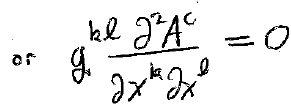 or g^{kl} ∂²A^c / ∂x^k ∂x^l = 0